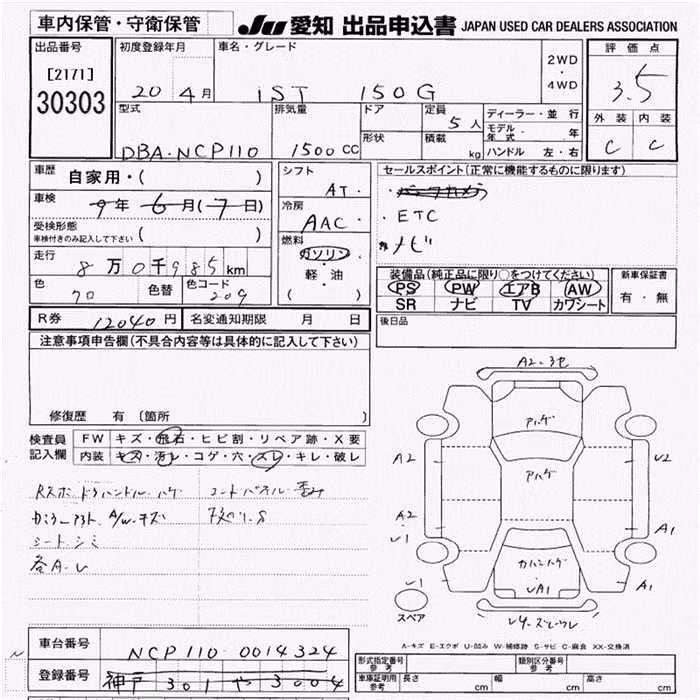 車内保管・守衛保管
JU 愛知 出品申込書 JAPAN USED CAR DEALERS ASSOCIATION
出品番号
[2171]
30303
初度登録年月
20 4月
車名・グレード
iST 150G
2WD
・
4WD
評価点
3.5
外装 内装
C C
型式
DBA-NCP110
排気量
1500 CC
ドア
形状
定員
5人
積載
kg
ディーラー・並行
モデル年式 年
ハンドル 左・右
車歴 自家用・( )
車検 9年6月(7日)
受検形態
車検付きのみ記入して下さい ( )
走行 8万0千985km
色 70 色替
色コード 209
シフト
AT
冷房
AAC
燃料
ガソリン
・
軽・油
( )
セールスポイント(正常に機能するものに限ります)
・ETC
・ナビ
装備品(純正品に限り○をつけてください)
PS PW エアB AW
SR ナビ TV カワシート
新車保証書
有・無
後日品
R券 12040円 名変通知期限 月 日
注意事項申告欄(不具合内容等は具体的に記入して下さい)
修復歴 有 〔箇所 〕
検査員記入欄
FW キズ・飛石・ヒビ割・リペア跡・X要
内装 キズ・汚レ・コゲ・穴・スレ・キレ・破レ
シート シミ
各A・U
A2
A2
U1
U1
U2
A1
A1
アハゲ
アハゲ
UA1
スペア
A-キズ E-エクボ U-凹み W-補修跡 S-サビ C-腐食 XX-交換済
車台番号 NCP110-0014324
登録番号 神戸 301 や 3004
形式指定番号 参考
類別区分番号 参考
車庫証明用 参考 長さ cm 幅 cm 高さ cm